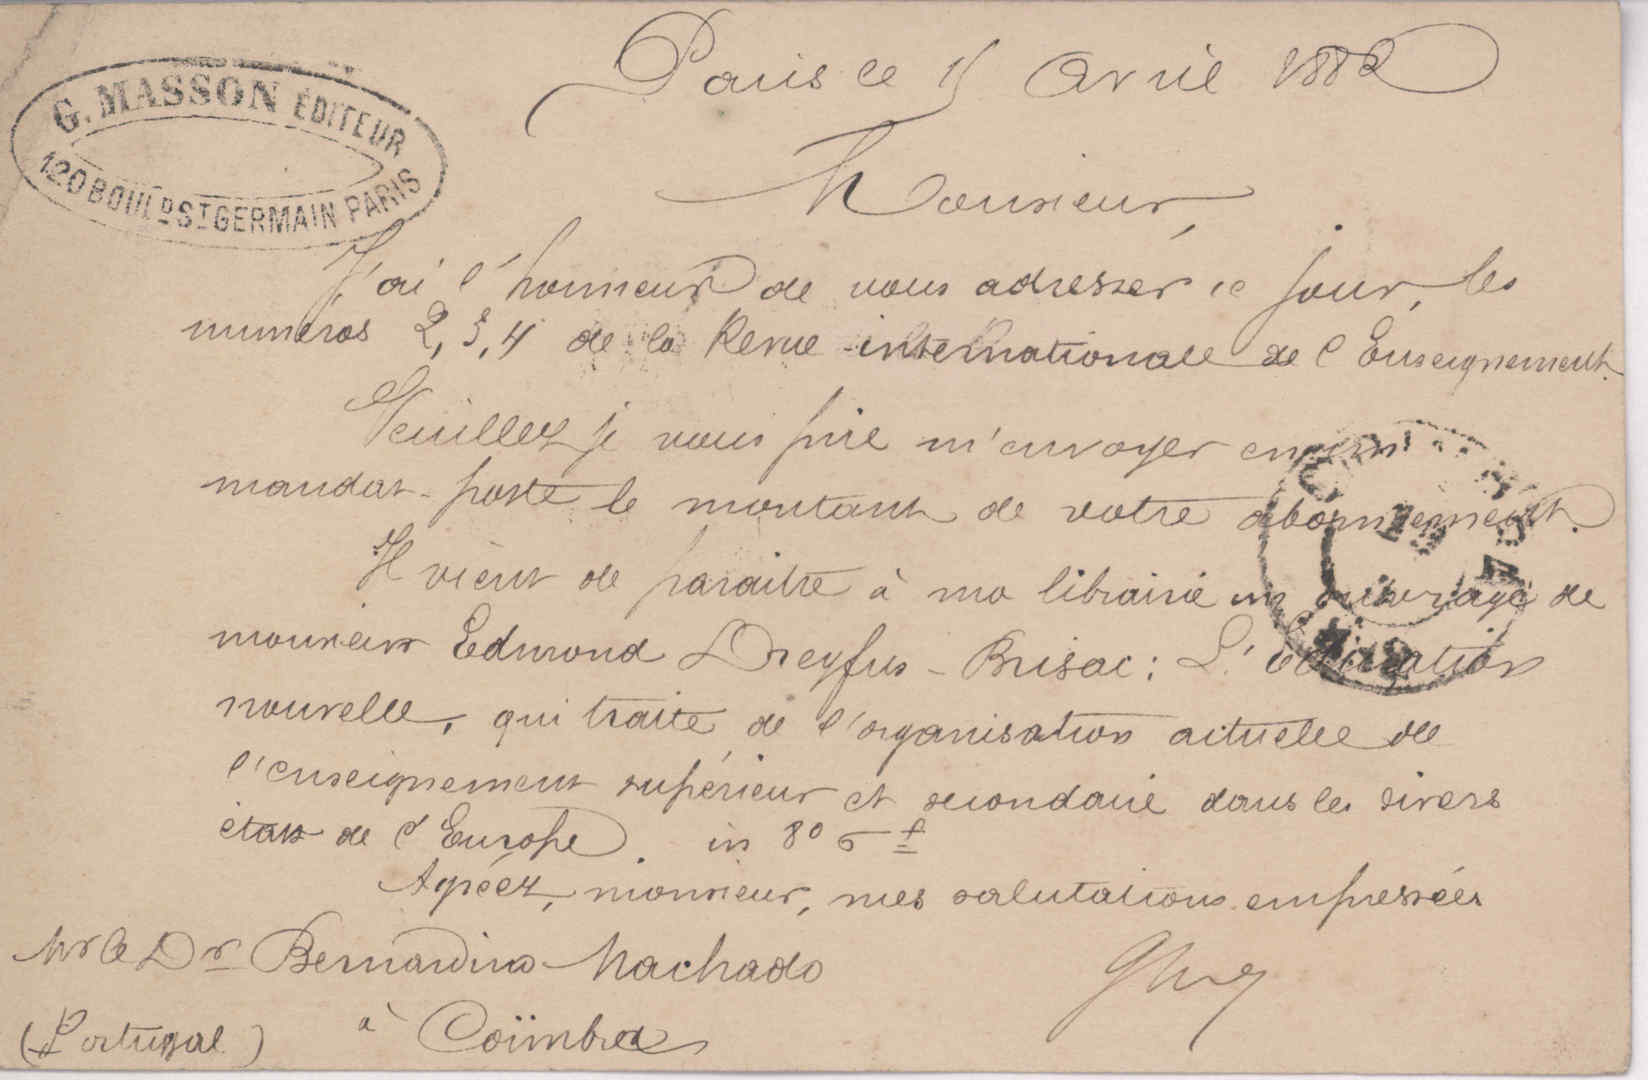 G. MASSON ÉDITEUR
120 BOULD ST GERMAIN PARIS
Paris ce 15 Avril 1882
Monsieur,
J'ai l'honneur de vous adresser ce jour, les
numéros 2, 3, 4 de la Revue internationale de l'Enseignement.
Veuillez je vous prie m'envoyer en un
mandat-poste le montant de votre abonnement.
Il vient de paraitre à ma librairie un ouvrage de
monsieur Edmond Dreyfus-Brisac: L'éducation
nouvelle, qui traite de l'organisation actuelle de
l'enseignement supérieur et secondaire dans les divers
états de l'Europe. in 8o
Agréez, monsieur, mes salutations empressées
Mr le Dr Bernardino Machado
à Coïmbra
(Portugal)